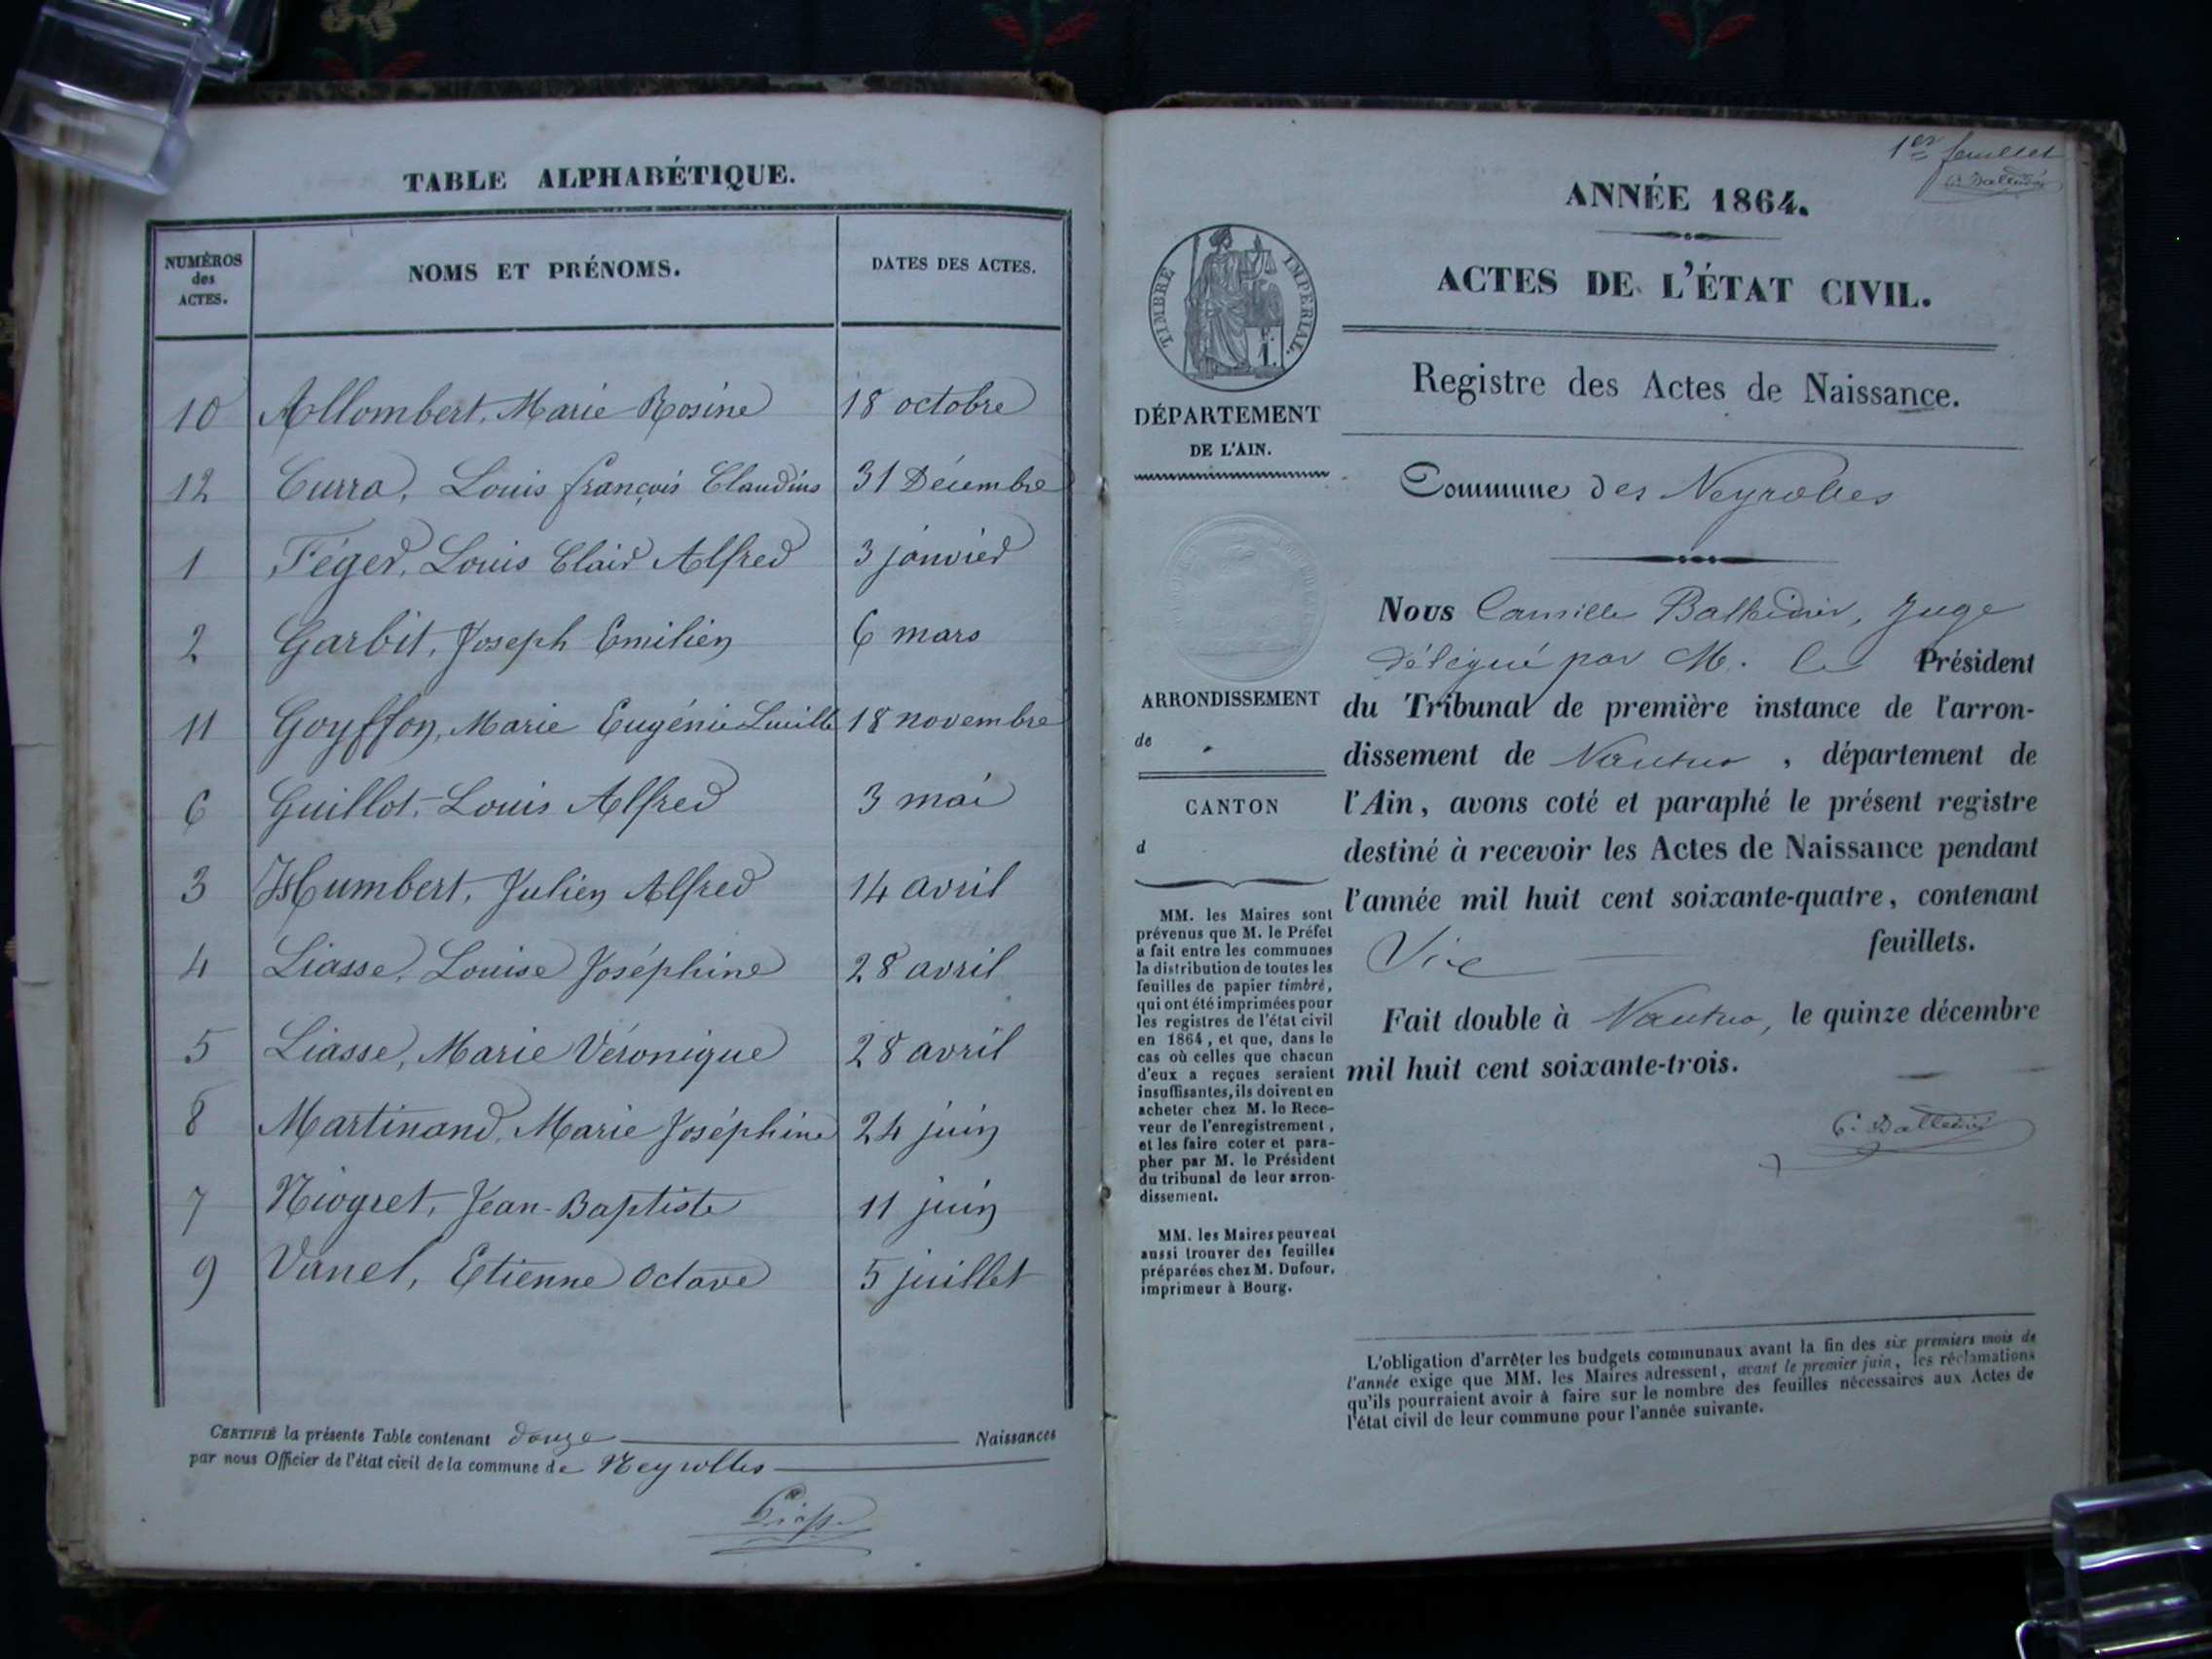 TABLE ALPHABÉTIQUE.
NUMÉROS des ACTES.
NOMS ET PRÉNOMS.
DATES DES ACTES.
10 Allombert, Marie Rosine 18 octobre
12 Curra, Louis françois Claudius 31 Décembre
1 Féger, Louis Clair Alfred 3 janvier
2 Garbit, Joseph Emilien 6 mars
11 Goyffon, Marie Eugénie Lucille 18 novembre
6 Guillot, Louis Alfred 3 mai
3 Humbert, Julien Alfred 14 avril
4 Liasse, Louise Joséphine 28 avril
5 Liasse, Marie Véronique 28 avril
8 Martinand, Marie Joséphine 24 juin
7 Niogret, Jean-Baptiste 11 juin
9 Vanel, Etienne Octave 5 juillet
CERTIFIÉ la présente Table contenant douze Naissances
par nous Officier de l'état civil de la commune de Neyrolles
1er feuillet
ANNÉE 1864.
ACTES DE L'ÉTAT CIVIL.
Registre des Actes de Naissance.
Commune des Neyrolles
TIMBRE IMPÉRIAL.
DÉPARTEMENT
DE L'AIN.
ARRONDISSEMENT
de
CANTON
d
MM. les Maires sont
prévenus que M. le Préfet
a fait entre les communes
la distribution de toutes les
feuilles de papier timbré,
qui ont été imprimées pour
les registres de l'état civil
en 1864, et que, dans le
cas où celles que chacun
d'eux a reçues seraient
insuffisantes, ils doivent en
acheter chez M. le Rece-
veur de l'enregistrement,
et les faire coter et para-
pher par M. le Président
du tribunal de leur arron-
dissement.
MM. les Maires peuvent
aussi trouver des feuilles
préparées chez M. Dufour,
imprimeur à Bourg.
Nous Camille Juge
délégué par M. le Président
du Tribunal de première instance de l'arron-
dissement de Nantua, département de
l'Ain, avons coté et paraphé le présent registre
destiné à recevoir les Actes de Naissance pendant
l'année mil huit cent soixante-quatre, contenant
Six feuillets.
Fait double à Nantua, le quinze décembre
mil huit cent soixante-trois.
L'obligation d'arrêter les budgets communaux avant la fin des six premiers mois de
l'année exige que MM. les Maires adressent, avant le premier juin, les réclamations
qu'ils pourraient avoir à faire sur le nombre des feuilles nécessaires aux Actes de
l'état civil de leur commune pour l'année suivante.